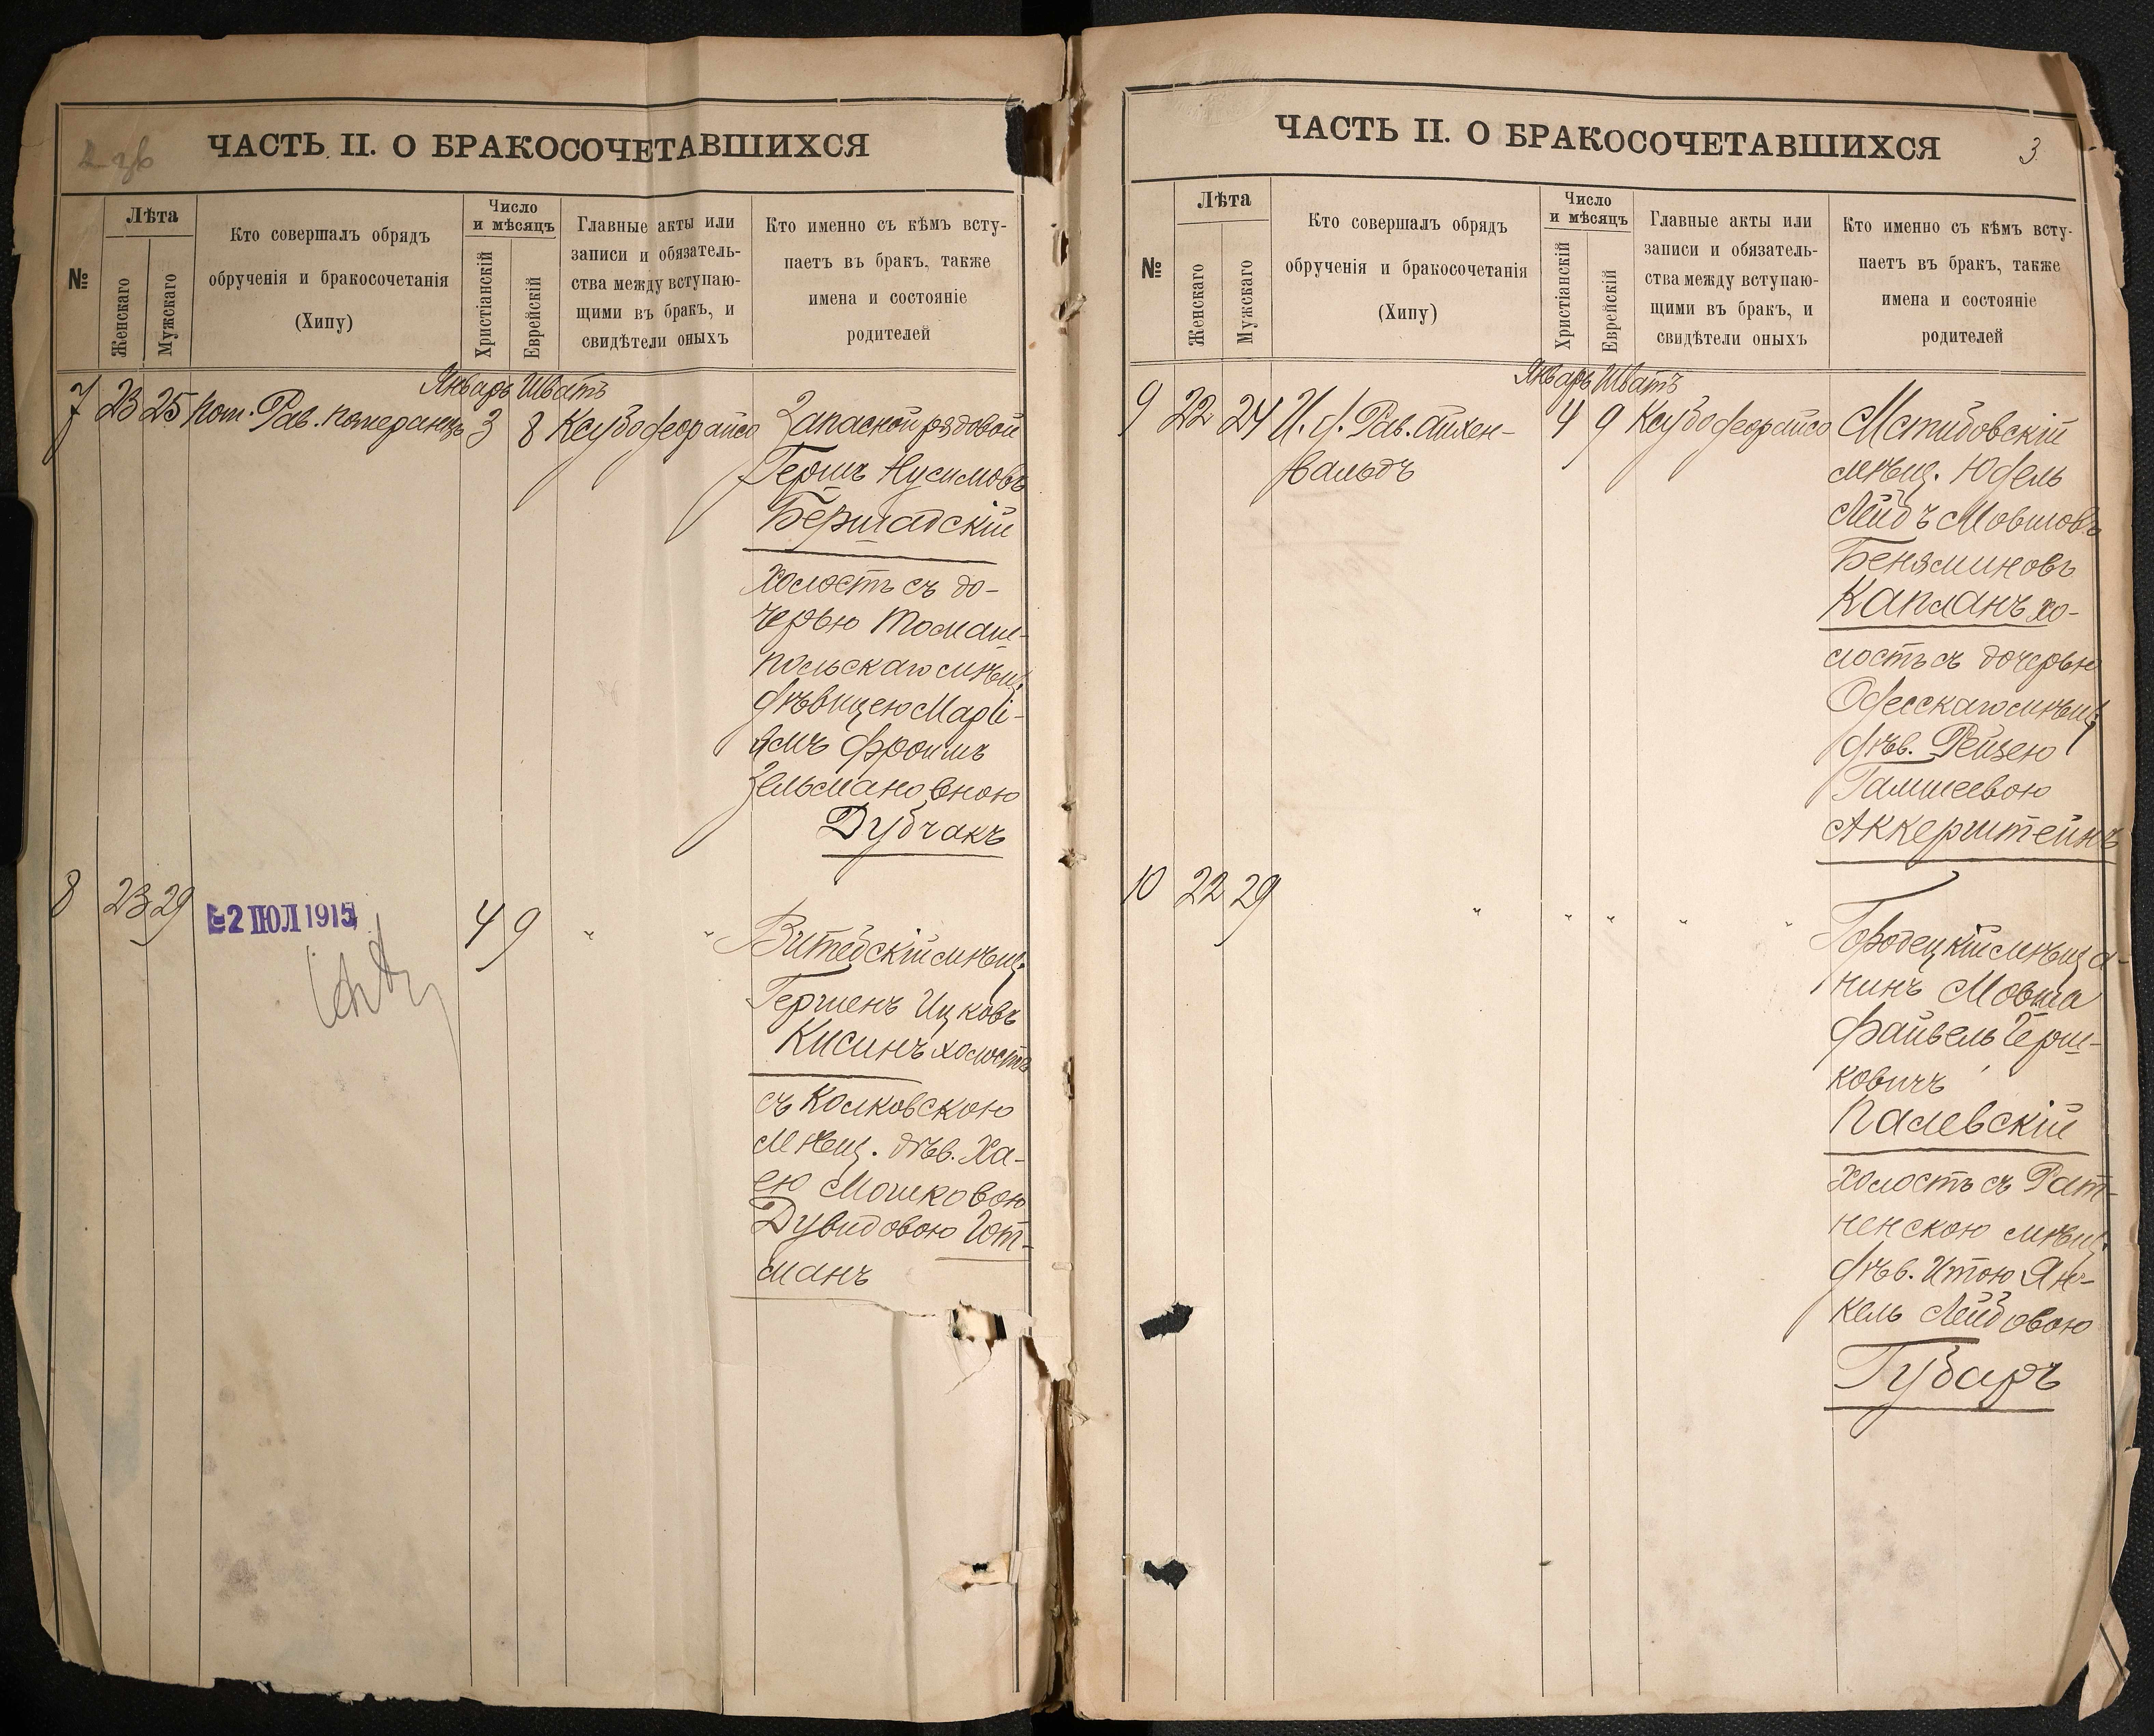 ЧАСТЬ II. О БРАКОСОЧЕТАВШИХСЯ
№
Лѣта
Женскаго
Мужскаго
Кто совершалъ обрядъ
обрученія и бракосочетанія
(Хипу)
Число
и мѣсяцъ
Христіанскій
Еврейскій
Главные акты или
записи и обязатель-
ства между вступаю-
щими въ бракъ, и
свидѣтели оныхъ
Кто именно съ кѣмъ всту-
паетъ въ бракъ, также
имена и состояніе
родителей
Январь Шватъ
7 23 25 Пом. Рав. Померанцъ 3 8 Ксубо деорайсо Запасной рядовой
Гершъ Нусимовъ
Бершадскій
холостъ съ до-
черью Томаш-
польскаго мѣщ.
дѣвицею Марі-
ямъ Фроимъ
Зельмановною
Дубчакъ
8 23 29 2 ІЮЛ 1915 4 9 " " Витебскій мѣщ.
Гершенъ Ицковъ
Кисинъ холостъ
съ Колковскою
мѣщ. дѣв. Ха-
ею Мошковою
Дувидовою Гот-
манъ
ЧАСТЬ II. О БРАКОСОЧЕТАВШИХСЯ
3
№
Лѣта
Женскаго
Мужскаго
Кто совершалъ обрядъ
обрученія и бракосочетанія
(Хипу)
Число
и мѣсяцъ
Христіанскій
Еврейскій
Главные акты или
записи и обязатель-
ства между вступаю-
щими въ бракъ, и
свидѣтели оныхъ
Кто именно съ кѣмъ всту-
паетъ въ бракъ, также
имена и состояніе
родителей
Январь Шватъ
9 22 24 И. д. Рав. Айхен- 4 9 Ксубо деорайсо Мстибовскій
вальдъ мѣщ. Юдель
Лейбъ Мовшовъ
Беняминовъ
Капланъ хо-
лостъ съ дочерью
Одесскаго мѣщ.
дѣв. Рейзею
Гамшеевою
Аккерштейнъ
10 22 29 " " " " " Городецкій мѣща-
нинъ Мовша
Файвель Герш-
ковичъ
Палевскій
холостъ съ Рат-
ненскою мѣщ.
дѣв. Итою Ян-
кель Лейбовою
Губаръ